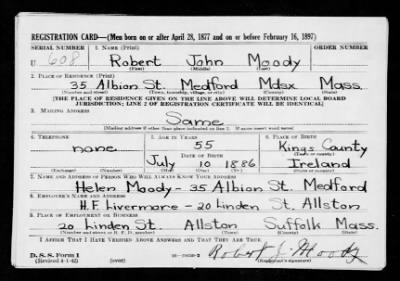 REGISTRATION CARD—(Men born on or after April 28, 1877 and on or before February 16, 1897)
SERIAL NUMBER 1. NAME (Print) ORDER NUMBER
U 608 Robert John Moody
(First) (Middle) (Last)
2. PLACE OF RESIDENCE (Print)
35 Albion St. Medford Mdsx Mass.
(Number and street) (Town, township, village, or city) (County) (State)
[THE PLACE OF RESIDENCE GIVEN ON THE LINE ABOVE WILL DETERMINE LOCAL BOARD
JURISDICTION; LINE 2 OF REGISTRATION CERTIFICATE WILL BE IDENTICAL]
3. MAILING ADDRESS
Same
[Mailing address if other than place indicated on line 2. If same insert word same]
4. TELEPHONE 5. AGE IN YEARS 6. PLACE OF BIRTH
none 55 Kings County
DATE OF BIRTH (Town or county)
July 10 1886 Ireland
(Mo.) (Day) (Yr.) (State or country)
7. NAME AND ADDRESS OF PERSON WHO WILL ALWAYS KNOW YOUR ADDRESS
Helen Moody - 35 Albion St. Medford
8. EMPLOYER'S NAME AND ADDRESS
H.F. Livermore - 20 Linden St. Allston
9. PLACE OF EMPLOYMENT OR BUSINESS
20 Linden St. Allston Suffolk Mass.
(Number and street or R. F. D. number) (Town) (County) (State)
I AFFIRM THAT I HAVE VERIFIED ABOVE ANSWERS AND THAT THEY ARE TRUE.
D. S. S. Form 1
(Revised 4-1-42) (over) Robert J. Moody
(Registrant's signature)